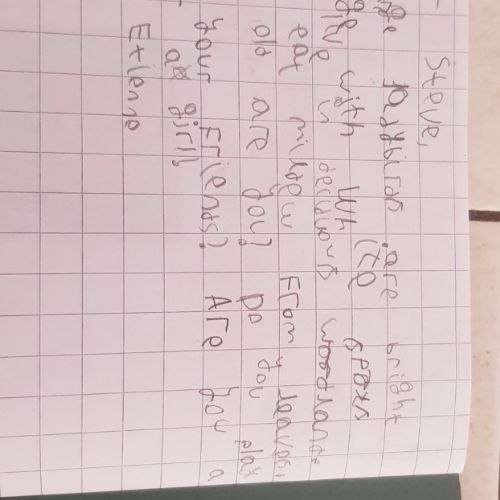 Steve,
ladybirds are bright
with white spots
live in deciduous woodlands.
eat mildew From leaves.
old are you? Do you play
your Friends? Are you a
girl?
Etienne